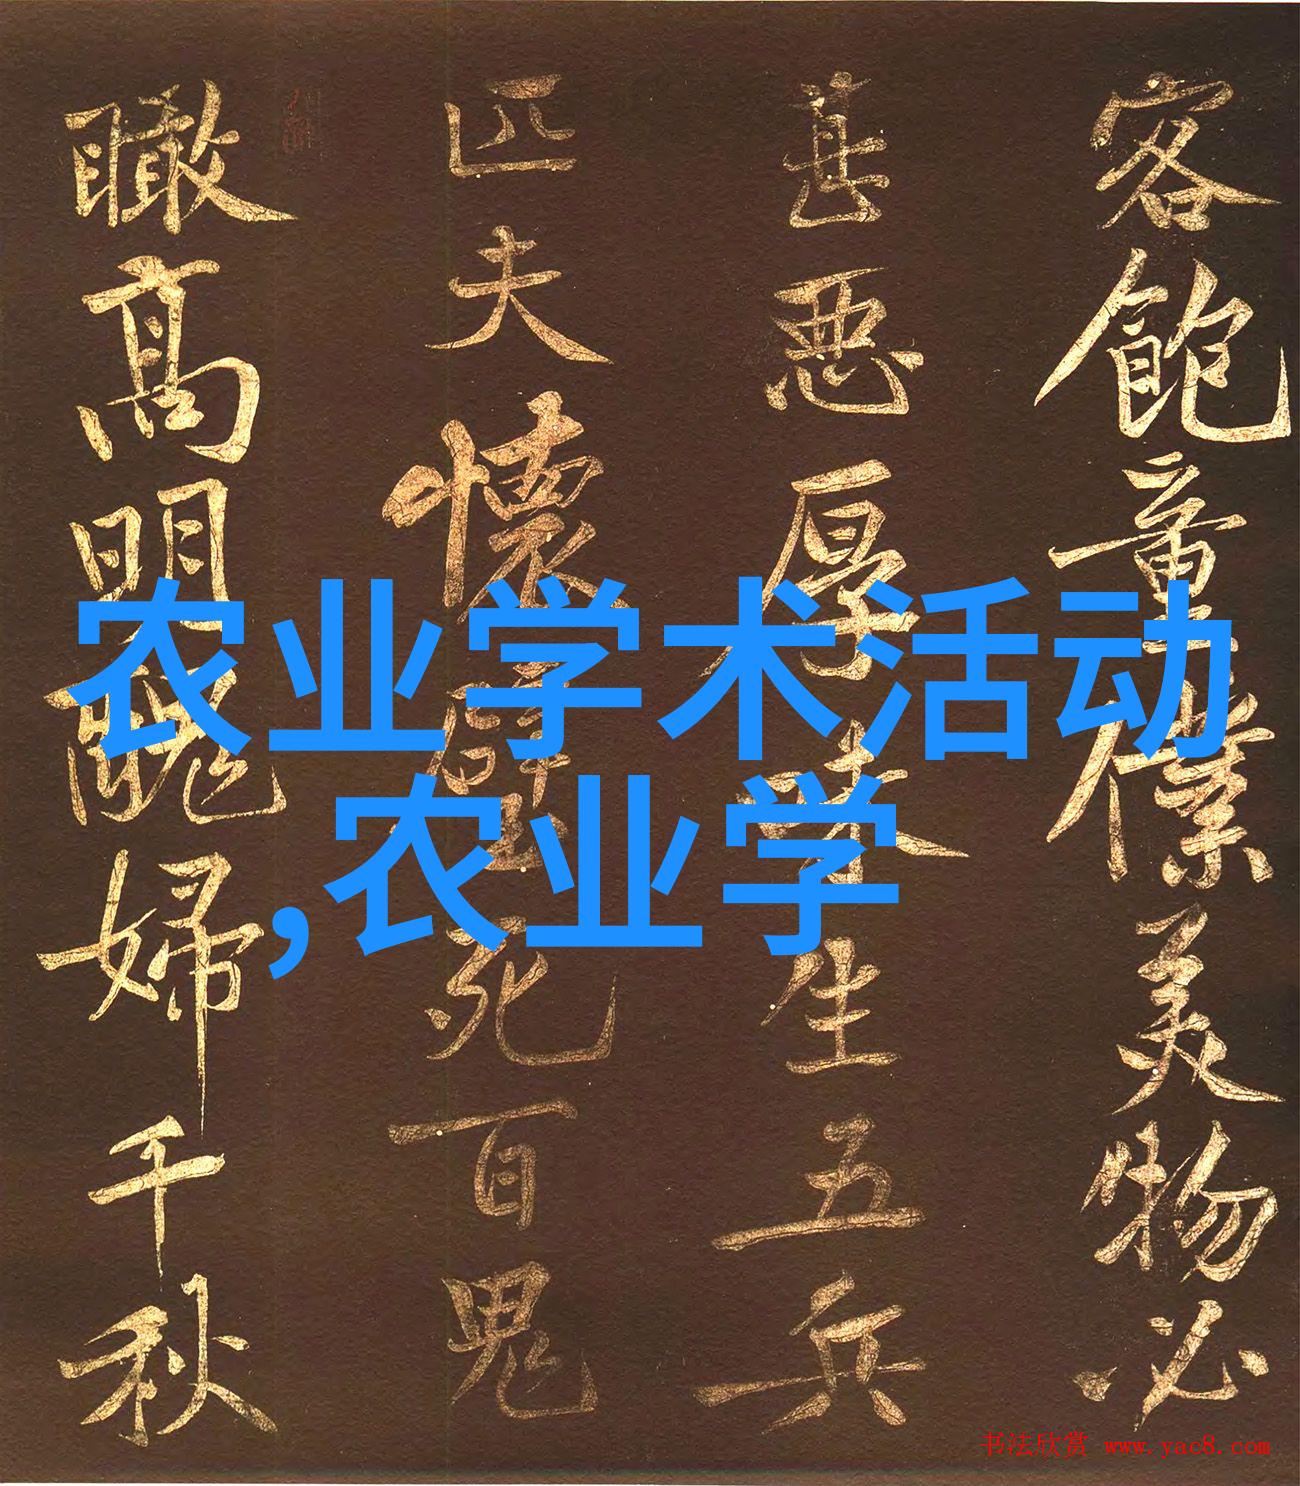 客飽童僕美物必
甚惡厚味生五兵
匹夫懷璧死百鬼
瞰高明醜婦千秋
农业学术活动
,农业学
书法欣赏 www.yac8.com